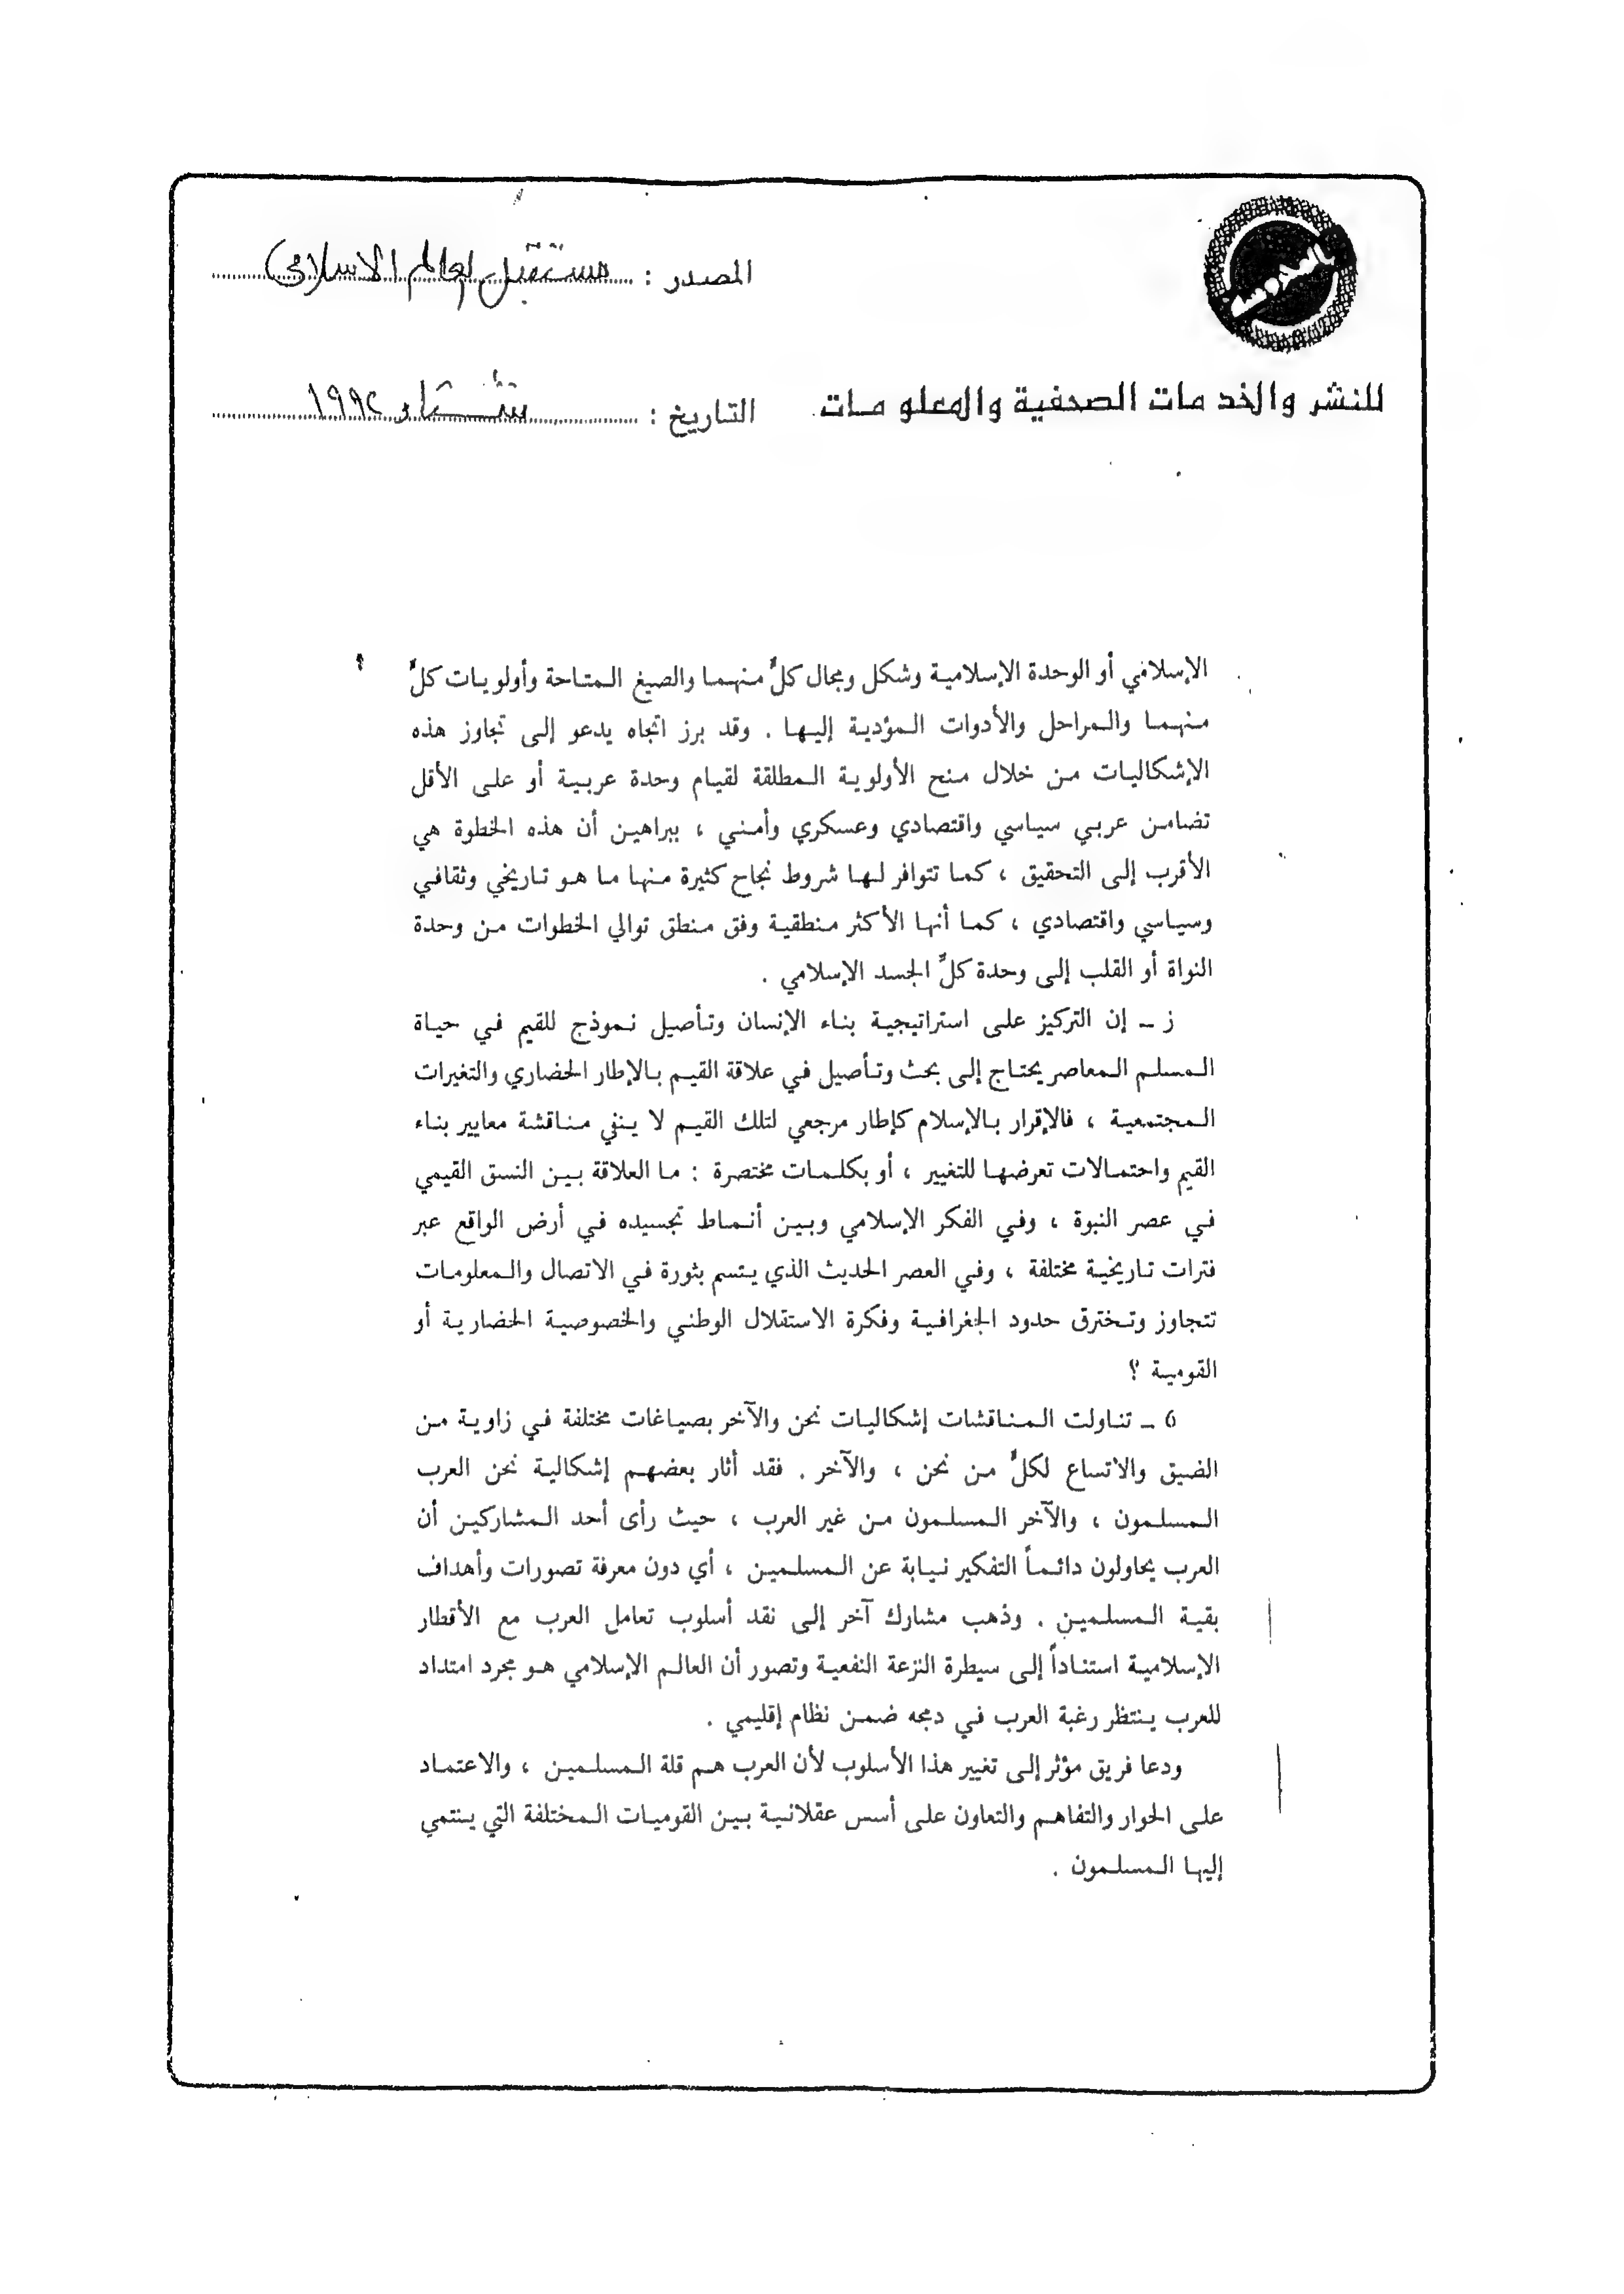 المصدر : مستقبل العالم الاسلامى
للنشر والخدمات الصحفية والمعلومات
التاريخ : شتاء ١٩٩٢
الإسلامي أو الوحدة الإسلامية وشكل ومجال كلٍّ منهما والصيغ المتاحة وأولويات كلٍّ
منهما والمراحل والأدوات المؤدية إليها . وقد برز اتجاه يدعو إلى تجاوز هذه
الإشكاليات من خلال منح الأولوية المطلقة لقيام وحدة عربية أو على الأقل
تضامن عربي سياسي واقتصادي وعسكري وأمني ، ببراهين أن هذه الخطوة هي
الأقرب إلى التحقيق ، كما تتوافر لها شروط نجاح كثيرة منها ما هو تاريخي وثقافي
وسياسي واقتصادي ، كما أنها الأكثر منطقية وفق منطق توالي الخطوات من وحدة
النواة أو القلب إلى وحدة كلِّ الجسد الإسلامي .
ز ـ إن التركيز على استراتيجية بناء الإنسان وتأصيل نموذج للقيم في حياة
المسلم المعاصر يحتاج إلى بحث وتأصيل في علاقة القيم بالإطار الحضاري والتغيرات
المجتمعية ، فالإقرار بالإسلام كإطار مرجعي لتلك القيم لا ينفي مناقشة معايير بناء
القيم واحتمالات تعرضها للتغيير ، أو بكلمات مختصرة : ما العلاقة بين النسق القيمي
في عصر النبوة ، وفي الفكر الإسلامي وبين أنماط تجسيده في أرض الواقع عبر
فترات تاريخية مختلفة ، وفي العصر الحديث الذي يتسم بثورة في الاتصال والمعلومات
تتجاوز وتخترق حدود الجغرافية وفكرة الاستقلال الوطني والخصوصية الحضارية أو
القومية ؟
6 ـ تناولت المناقشات إشكاليات نحن والآخر بصياغات مختلفة في زاوية من
الضيق والاتساع لكلٍّ من نحن ، والآخر . فقد أثار بعضهم إشكالية نحن العرب
المسلمون ، والآخر المسلمون من غير العرب ، حيث رأى أحد المشاركين أن
العرب يحاولون دائماً التفكير نيابة عن المسلمين ، أي دون معرفة تصورات وأهداف
بقية المسلمين . وذهب مشارك آخر إلى نقد أسلوب تعامل العرب مع الأقطار
الإسلامية استناداً إلى سيطرة النزعة النفعية وتصور أن العالم الإسلامي هو مجرد امتداد
للعرب ينتظر رغبة العرب في دمجه ضمن نظام إقليمي .
ودعا فريق مؤثر إلى تغيير هذا الأسلوب لأن العرب هم قلة المسلمين ، والاعتماد
على الحوار والتفاهم والتعاون على أسس عقلانية بين القوميات المختلفة التي ينتمي
إليها المسلمون .